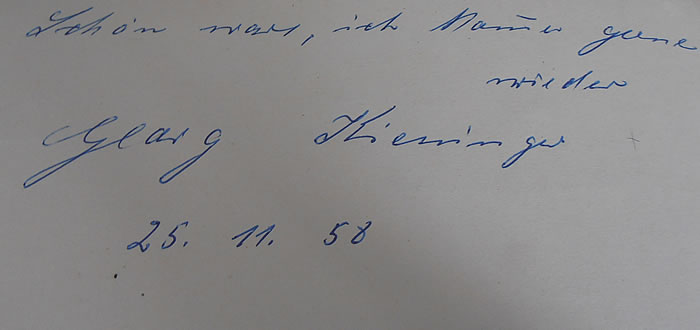 Schön wars, ich komme gerne
wieder
Georg Kieninger
25. 11. 58